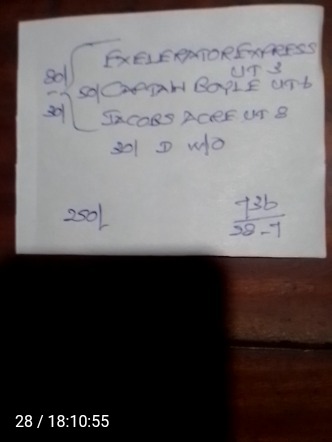 EXELERATOR EXPRESS
UT 3
80/
50/ CAPTAIN BOYLE UT 6
30/
JACOBS ACRE UT 8
30/ D W/O
250/
736
38-7
28 / 18:10:55